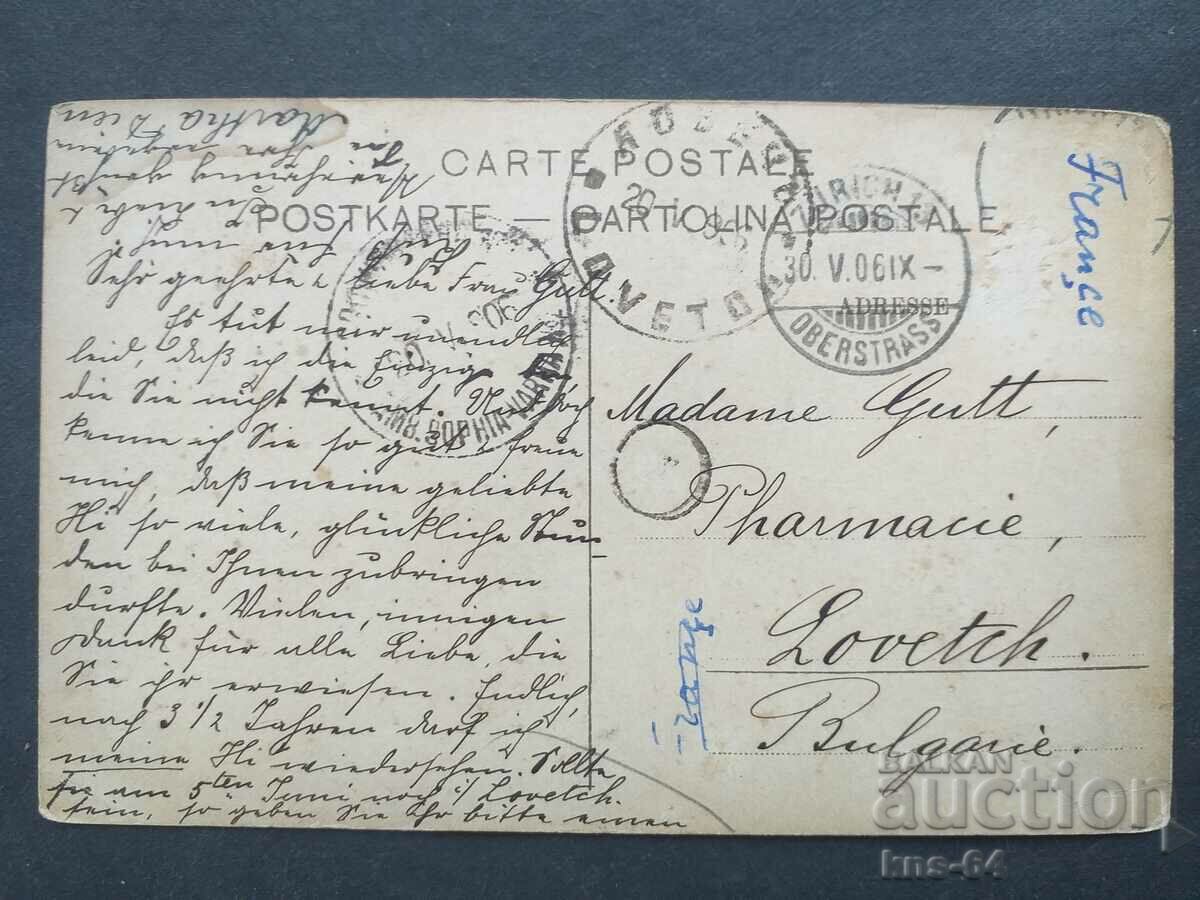 CARTE POSTALE
POSTKARTE — CARTOLINA POSTALE.
ADRESSE
30. V.06 IX –
OBERSTRASS
SOPHIA-VARNA
Françe
Sehr geehrte, liebe Frau Gutt.
Es tut mir unendlich
leid, daß ich die Einzige bin
die Sie nicht kennt. Und doch
kenne ich Sie so gut & freue
mich, daß meine geliebte
Hi so viele, glückliche Stun-
den bei Ihnen zubringen
durfte. Vielen, innigen
Dank für alle Liebe, die
Sie ihr erwiesen. Endlich,
nach 3 1/2 Jahren darf ich
meine Hi wiedersehen. Sollte
sie am 5ten Juni noch i/ Lovetch.
sein, so geben Sie Ihr bitte einen
Martha
Madame Gutt,
Pharmacie,
Lovetch.
Bulgarie.
BALKAN
auction
kns-64